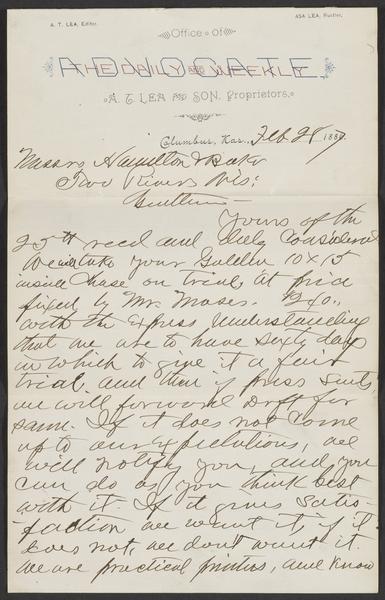 A. T. LEA, Editor.
ASA LEA, Hustler.
Office of
THE DAILY AND WEEKLY
ADVOCATE
A. T. LEA AND SON, Proprietors.
Columbus, Kas., Feb 28 1889.
Messrs Hamilton & Baker
Two Rivers Wis;
Gentlemen
Yours of the
25th recd and duly considered
We will take your Golden 10x15
inside chase on trial at price
fixed by Mr. Moses.
with the express understanding
that we are to have sixty days
in which to give it a fair
trial and then if press suits,
we will forward Drft for
same. If it does not come
up to our expectations, we
will notify you, and you
can do as you think best
with it. If it gives satis-
faction we want it, if it
does not, we dont want it.
We are practical printers, and know